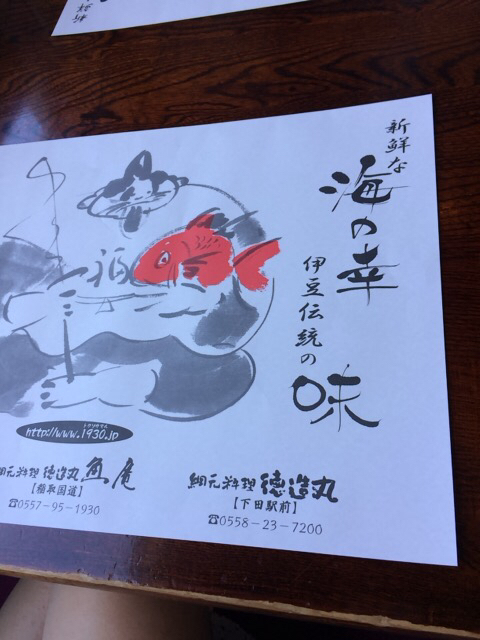 新鮮な
海の幸
伊豆伝統の
味
福
トクゾウマル
http://www.1930.jp
網元料理 徳造丸 魚庵
【稲取国道】
☎0557-95-1930
網元料理 徳造丸
【下田駅前】
☎0558-23-7200